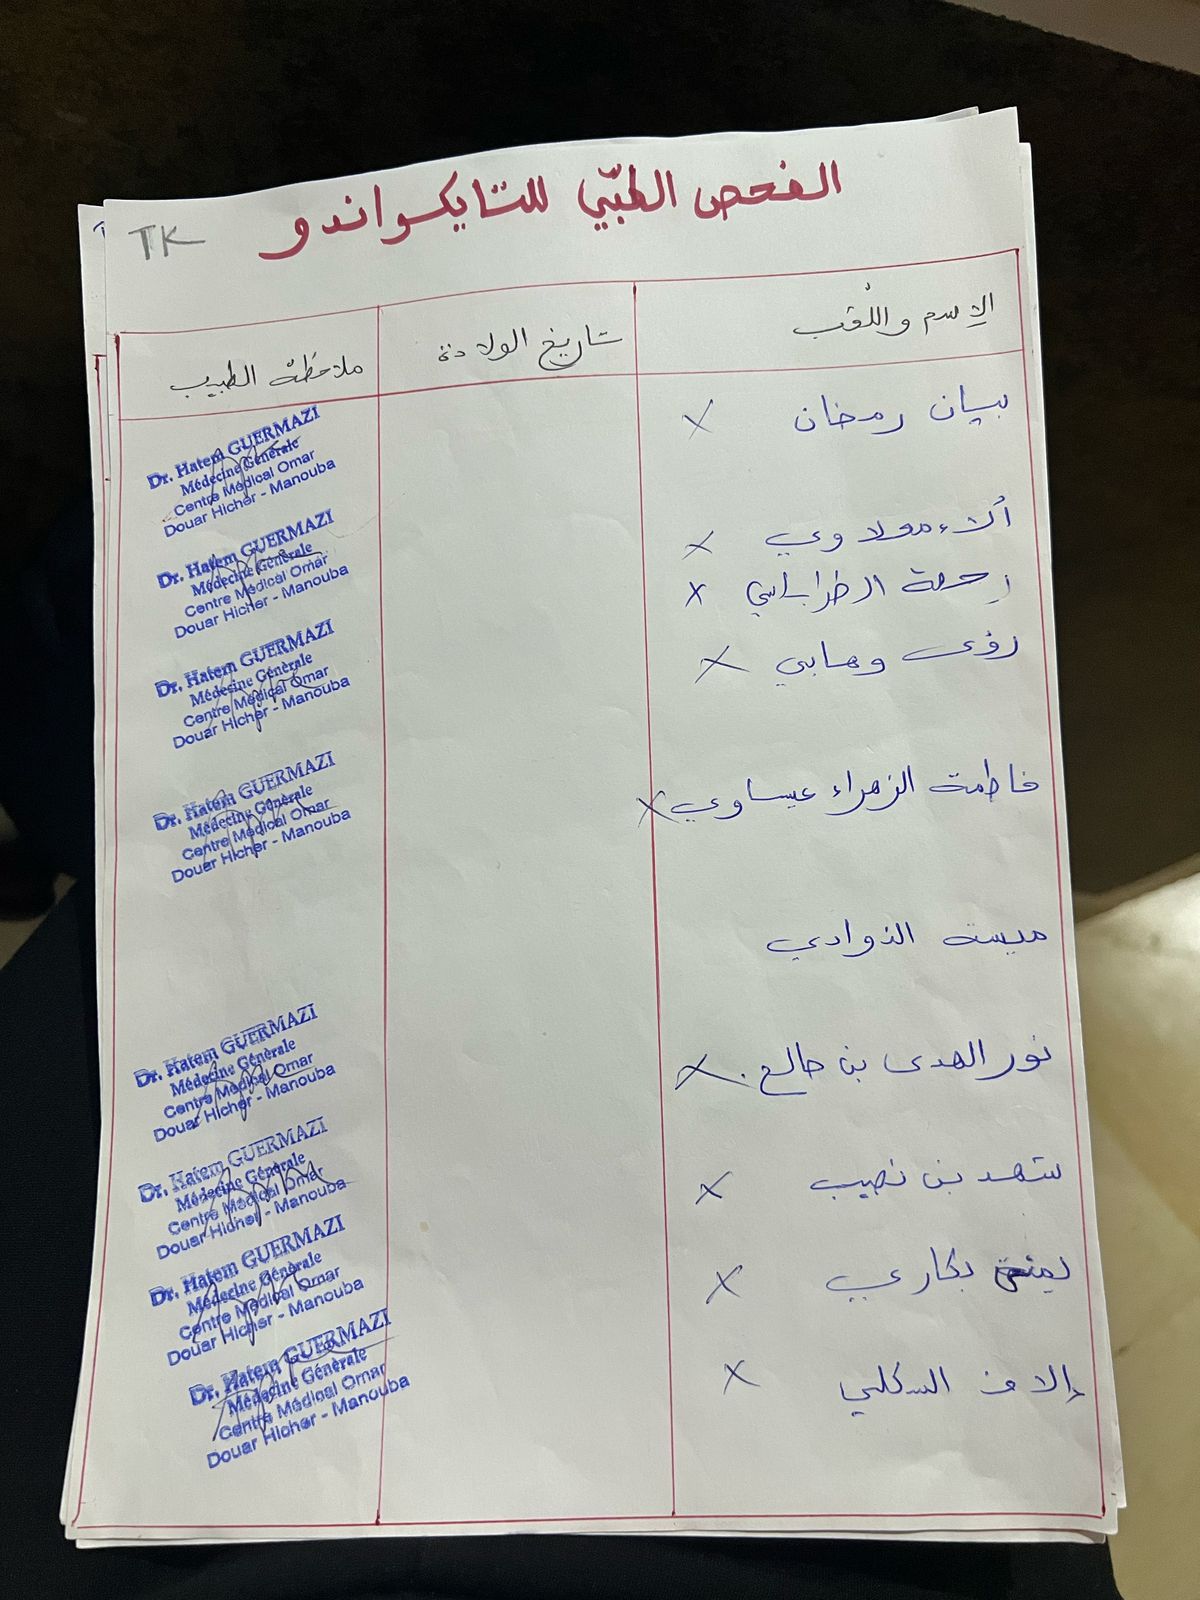 الفحص الطبّي للتايكواندو
TK
الإسم واللّقب
تاريخ الولادة
ملاحظة الطبيب
بيسان رمضان X
Dr. Hatem GUERMAZI
Médecine Générale
Centre Médical Omar
Douar Hicher - Manouba
ألاء مولاوي X
Dr. Hatem GUERMAZI
Médecine Générale
Centre Médical Omar
Douar Hicher - Manouba
رحمة الطرابلسي X
رؤى وهابي X
Dr. Hatem GUERMAZI
Médecine Générale
Centre Médical Omar
Douar Hicher - Manouba
فاطمة الزهراء عيساوي X
Dr. Hatem GUERMAZI
Médecine Générale
Centre Médical Omar
Douar Hicher - Manouba
ميسة الذوادي
نور الهدى بن صالح . X
Dr. Hatem GUERMAZI
Médecine Générale
Centre Médical Omar
Douar Hicher - Manouba
شهد بن نصيب X
Dr. Hatem GUERMAZI
Médecine Générale
Centre Médical Omar
Douar Hicher - Manouba
يمنى بكاري X
Dr. Hatem GUERMAZI
Médecine Générale
Centre Médical Omar
Douar Hicher - Manouba
إلاف السكلي X
Dr. Hatem GUERMAZI
Médecine Générale
Centre Médical Omar
Douar Hicher - Manouba